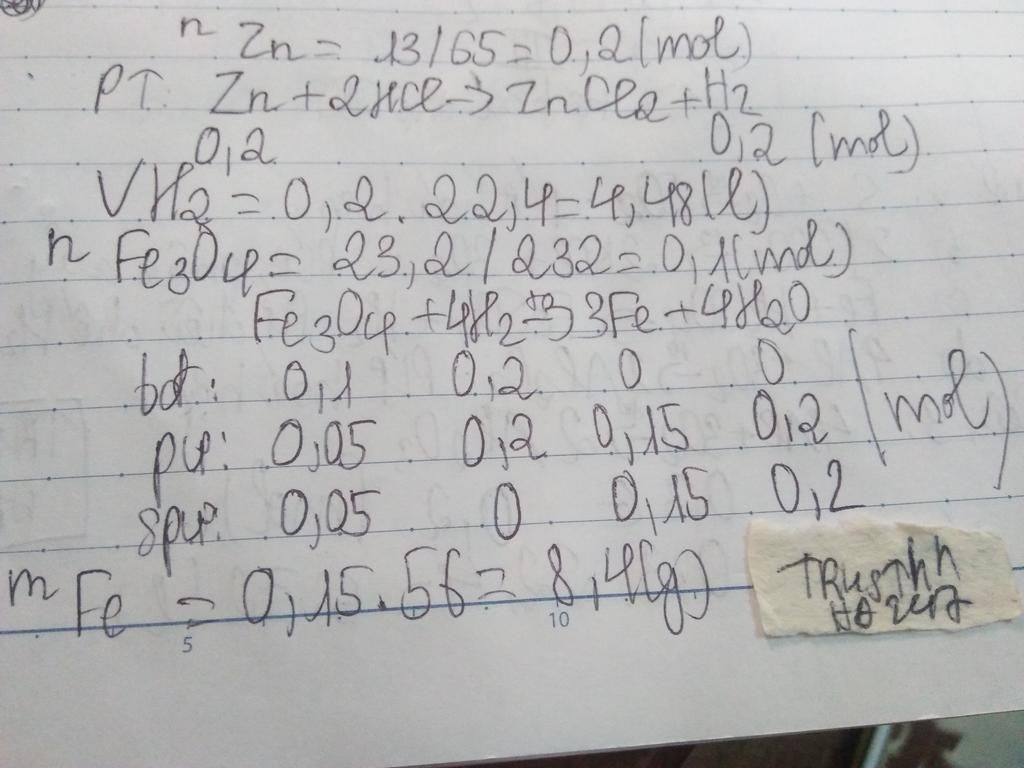 n Zn = 13/65 = 0,2 (mol)
PT: Zn + 2HCl → ZnCl2 + H2
0,2 0,2 (mol)
VH2 = 0,2. 22,4 = 4,48 (l)
n Fe3O4 = 23,2 / 232 = 0,1 (mol)
Fe3O4 + 4H2 to→ 3Fe + 4H2O
bđ: 0,1 0,2 0 0 (mol)
pư: 0,05 0,2 0,15 0,2
spư: 0,05 0 0,15 0,2
m Fe = 0,15.56 = 8,4 (g)
5 10